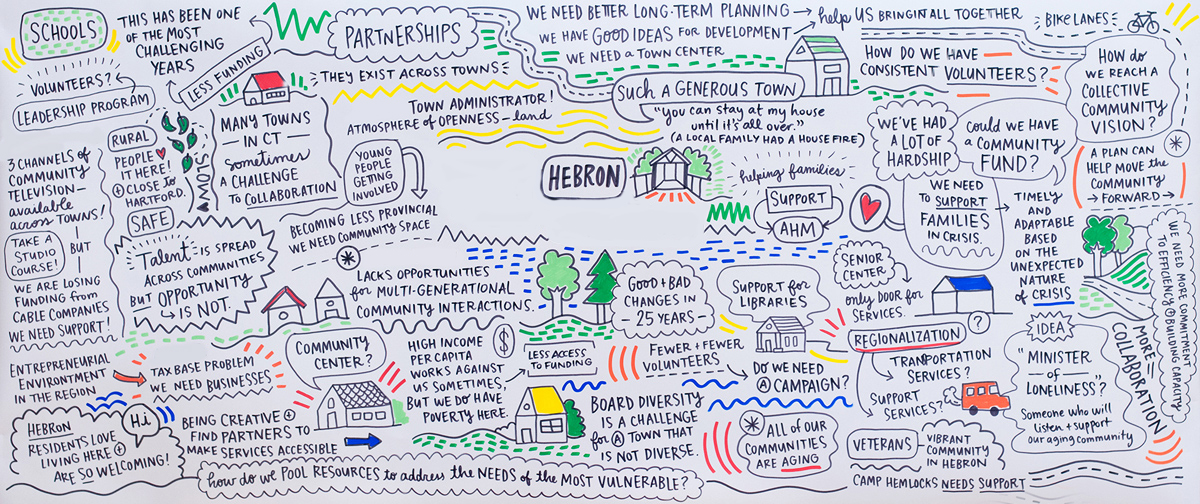 SCHOOLS
THIS HAS BEEN ONE
OF THE MOST
CHALLENGING
YEARS
VOLUNTEERS?
LEADERSHIP PROGRAM
LESS FUNDING
PARTNERSHIPS
THEY EXIST ACROSS TOWNS
WE NEED BETTER LONG-TERM PLANNING → help US BRING IT ALL TOGETHER
WE HAVE GOOD IDEAS FOR DEVELOPMENT
WE NEED A TOWN CENTER
BIKE LANES
HOW DO WE HAVE
CONSISTENT VOLUNTEERS?
HOW do
WE REACH A
COLLECTIVE
COMMUNITY
VISION?
A PLAN CAN
HELP MOVE THE
COMMUNITY
FORWARD →
SUCH A GENEROUS TOWN
"you can stay at my house
until it's all over."
(A LOCAL FAMILY HAD A HOUSE FIRE)
TOWN ADMINISTRATOR!
ATMOSPHERE OF OPENNESS - land
MANY TOWNS
IN CT -
sometimes
A CHALLENGE
to COLLABORATION
YOUNG
PEOPLE
GETTING
INVOLVED
RURAL
PEOPLE
♥ IT HERE!
+ CLOSE to
HARTFORD.
SAFE
3 CHANNELS of
COMMUNITY
TELEVISION -
available
across TOWNS!
TAKE A
STUDIO
COURSE!
BUT
WE ARE LOSING
FUNDING from
CABLE COMPANIES
WE NEED SUPPORT!
HEBRON
helping families
SUPPORT
AHM
WE'VE HAD
A LOT OF
HARDSHIP
COULD WE HAVE
a COMMUNITY
FUND?
WE NEED
to SUPPORT
FAMILIES
IN CRISIS.
TIMELY
AND
ADAPTABLE
BASED
ON THE
UNEXPECTED
NATURE
of CRISIS
BECOMING LESS PROVINCIAL
WE NEED COMMUNITY SPACE
Talent IS SPREAD
ACROSS COMMUNITIES
BUT OPPORTUNITY
IS NOT.
LACKS OPPORTUNITIES
for MULTI-GENERATIONAL
COMMUNITY INTERACTIONS.
GOOD + BAD
CHANGES IN
- 25 YEARS -
SUPPORT for
LIBRARIES
SENIOR
CENTER
only DOOR for
SERVICES.
REGIONALIZATION
?
TRANSPORTATION
SERVICES?
SUPPORT
SERVICES?
IDEA
"MINISTER
- of -
LONELINESS"?
Someone who will
listen + support
our aging community
MORE =
COLLABORATION
WE NEED MORE COMMITMENT
TO EFFICIENCY + BUILDING CAPACITY
ENTREPRENEURIAL
ENVIRONTMENT
IN THE REGION
TAX BASE PROBLEM
WE NEED BUSINESSES
COMMUNITY
CENTER?
HIGH INCOME
PER CAPITA
WORKS AGAINST
US SOMETIMES,
BUT WE DO HAVE
POVERTY HERE.
$
LESS ACCESS
TO FUNDING
FEWER + FEWER
VOLUNTEERS
DO WE NEED
A CAMPAIGN?
HEBRON
RESIDENTS LOVE
LIVING HERE +
ARE SO WELCOMING!
Hi
BEING CREATIVE +
FIND PARTNERS TO
MAKE SERVICES ACCESSIBLE
BOARD DIVERSITY
IS A CHALLENGE
for A TOWN THAT
IS NOT DIVERSE.
ALL OF OUR
COMMUNITIES
ARE AGING
VETERANS
VIBRANT
COMMUNITY
IN HEBRON
CAMP HEMLOCKS NEEDS SUPPORT
how do we POOL RESOURCES to address the NEEDS of the MOST VULNERABLE?